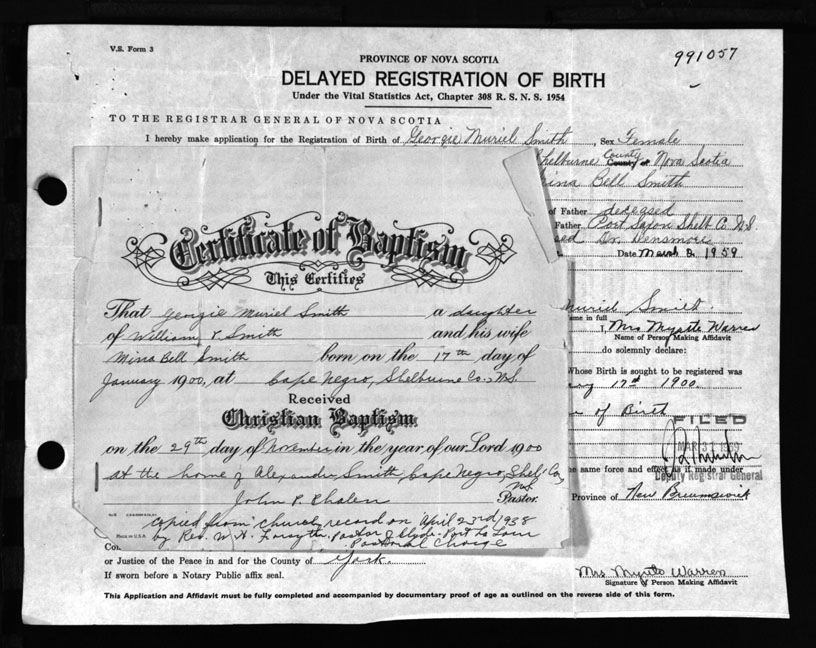 V.S. Form 3
991057
PROVINCE OF NOVA SCOTIA
DELAYED REGISTRATION OF BIRTH
Under the Vital Statistics Act, Chapter 308 R. S. N. S. 1954
TO THE REGISTRAR GENERAL OF NOVA SCOTIA
I hereby make application for the Registration of Birth of Georgie Muriel Smith, Sex Female
Shelburne County Nova Scotia
Mina Bell Smith
of Father deceased
Father Port Saxon Shelb Co. N.S.
Dr. Densmore
Date March 2, 1959
Certificate of Baptism
This Certifies
That Georgie Muriel Smith a daughter
of William T. Smith and his wife
Mina Bell Smith born on the 17th day of
January 1900, at Cape Negro, Shelburne Co., N.S.
Received
Christian Baptism
on the 29th day of November in the year of our Lord 1900
at the home of Alexander Smith, Cape Negro, Shel. Co.,
N.S.
John P. Phalen Pastor.
MADE IN U.S.A.
Copied from church record on April 23rd 1938
by Rev. W. H. Forsythe, Pastor of Clyde-Port La Tour
Pastoral Charge
Muriel Smith
name in full
I, Mrs Myrtle Warren
Name of Person Making Affidavit
do solemnly declare:
Whose Birth is sought to be registered was
17th 1900.
of Birth
FILED
MAR 31 1959
the same force and effect as if made under
Deputy Registrar General
Province of New Brunswick
or Justice of the Peace in and for the County of York.
If sworn before a Notary Public affix seal.
Mrs Myrtle Warren
Signature of Person Making Affidavit
This Application and Affidavit must be fully completed and accompanied by documentary proof of age as outlined on the reverse side of this form.